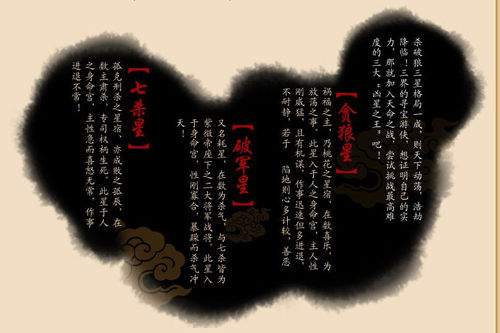 杀破狼三星格局一成，则天下动荡，浩劫
降临！三界的寻宝游侠，想证明自己的实
力，那就加入天命之战，尝试挑战最高难
度的三大“凶星之主”吧！
【贪狼星】
祸福之主，乃桃花之星宿，在数喜乐，为
放荡之事，此星入于人之身命宫，主人性
刚威猛，且有机谋，作事迅速但多进退，
不耐静，若于 陷地则心多计较，善恶
【破军星】
又名耗星，在数为杀气，与七杀皆为
紫微帝座下之二大将军战将，此星入
于身命宫，性刚寡合，暴躁而杀气冲
天！
【七杀星】
孤克刑杀之星宿，亦成败之孤辰，在
数主肃杀，专司权柄生死，此星于人
之身命宫，主性急而喜怒无常，作事
进退不常！